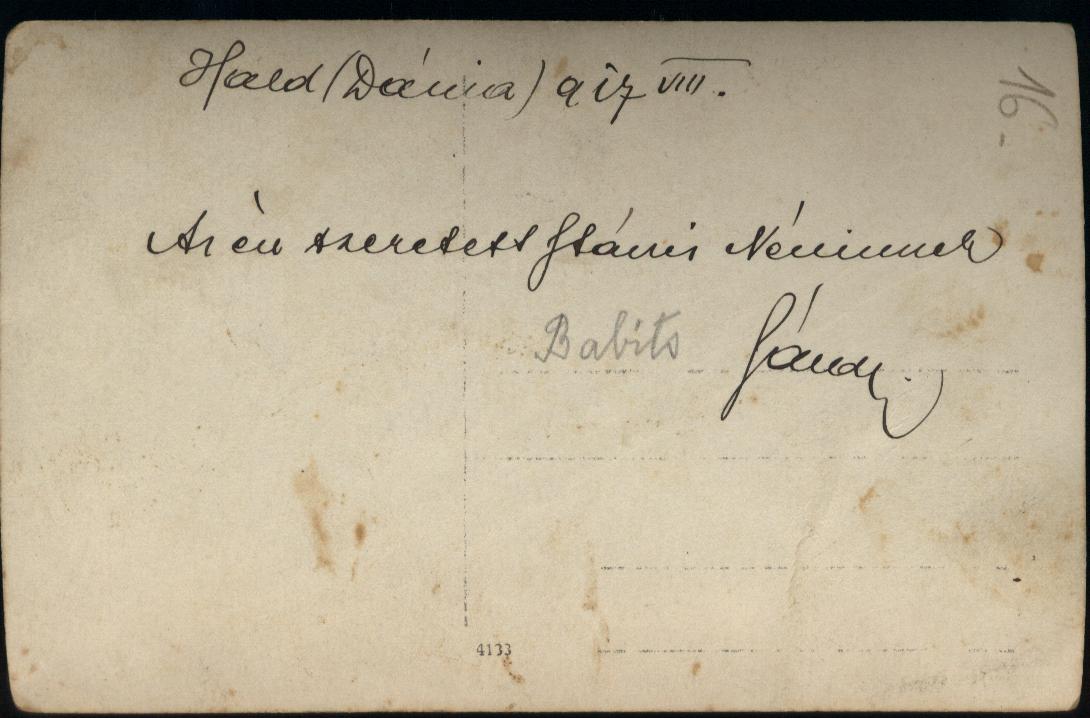 Hald (Dánia) 917 VIII.
16-
Az én szeretett Stánci Nénimnek
Babits
Sándor.
4133